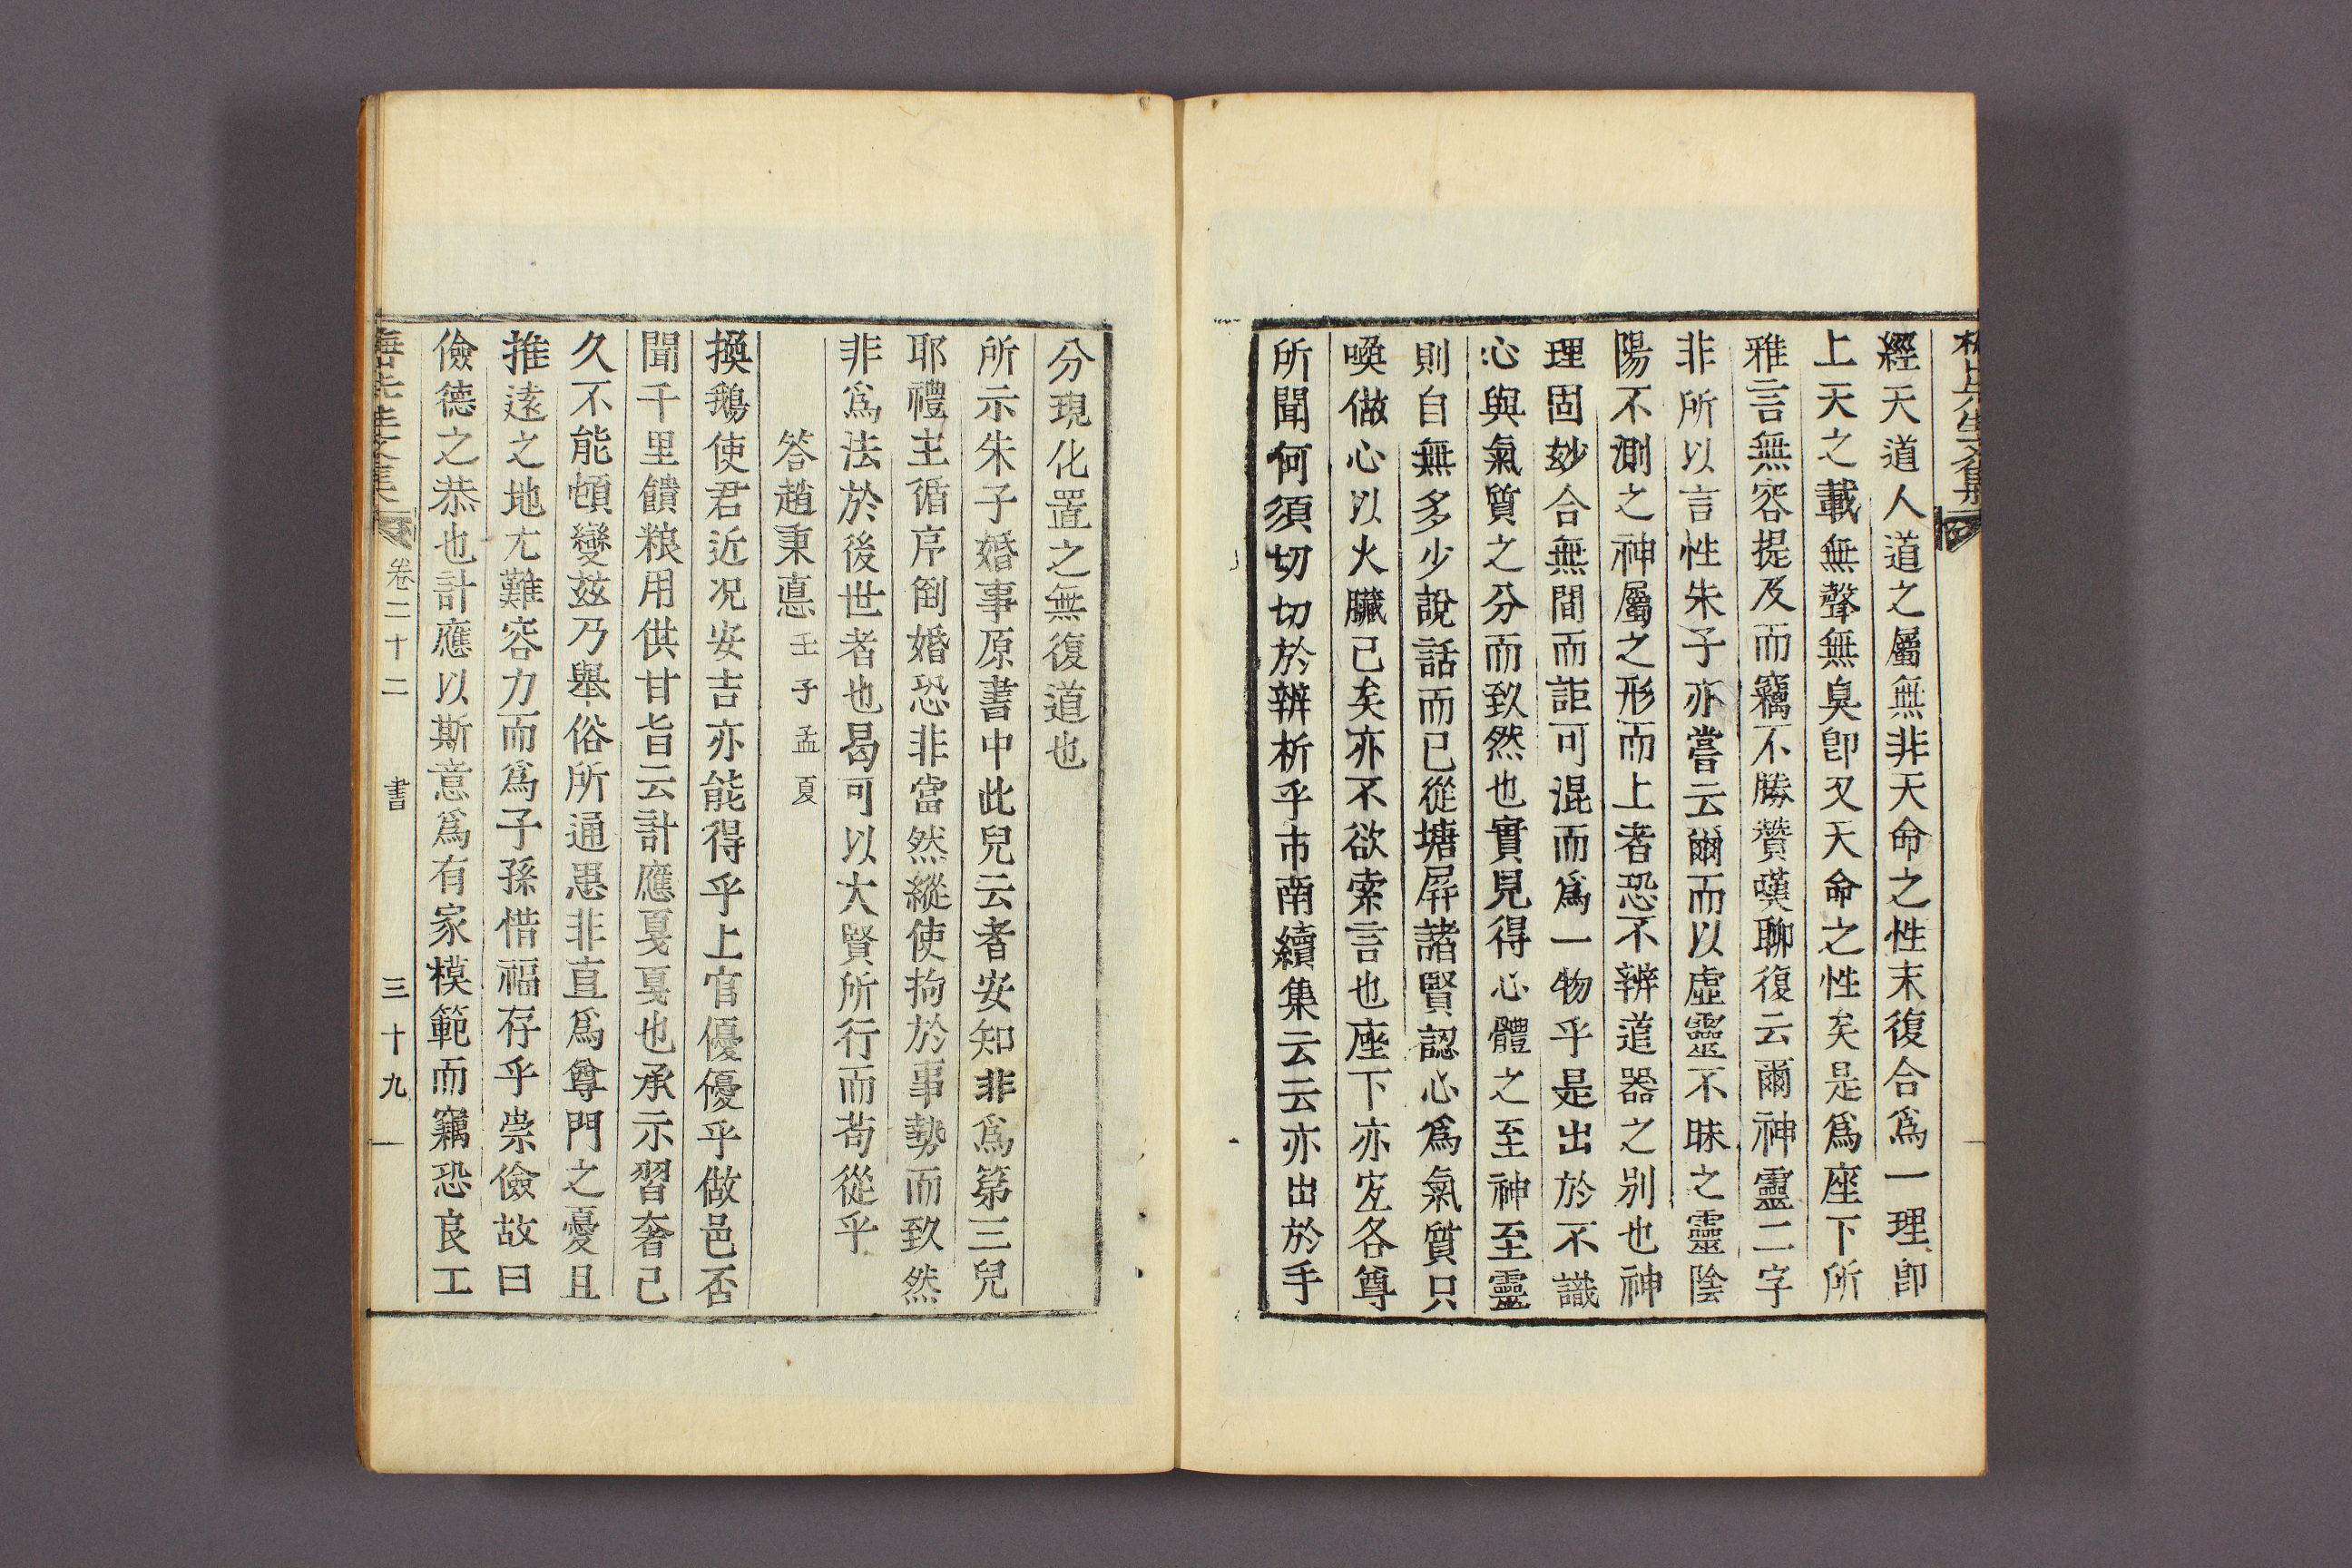 梅山先生文集
經天道人道之屬無非天命之性末復合爲一理卽
上天之載無聲無臭卽又天命之性矣是爲座下所
雅言無容提及而竊不勝贊嘆聊復云爾神靈二字
非所以言性朱子亦嘗云爾而以虛靈不昧之靈陰
陽不測之神屬之形而上者恐不辨道器之別也神
理固玅合無間而詎可混而爲一物乎是出於不識
心與氣質之分而致然也實見得心體之至神至靈
則自無多少說話而已從塘屛諸賢認心爲氣質只
喚做心以火臟已矣亦不欲索言也座下亦宐各尊
所聞何須切切於辨析乎市南續集云云亦出於手
分現化置之無復道也
所示朱子婚事原書中此兒云者安知非爲第三兒
耶禮主循序倒婚恐非當然縱使拘於事勢而致然
非爲法於後世者也曷可以大賢所行而苟從乎
答趙秉悳 壬子孟夏
換鵝使君近况安吉亦能得乎上官優優乎做邑否
聞千里饋粮用供甘旨云計應戛戛也承示習奢已
久不能頓變玆乃擧俗所通患非直爲尊門之憂且
推遠之地尤難容力而爲子孫惜福存乎崇儉故曰
儉德之恭也計應以斯意爲有家模範而竊恐良工
梅山先生文集 卷二十二 書 三十九